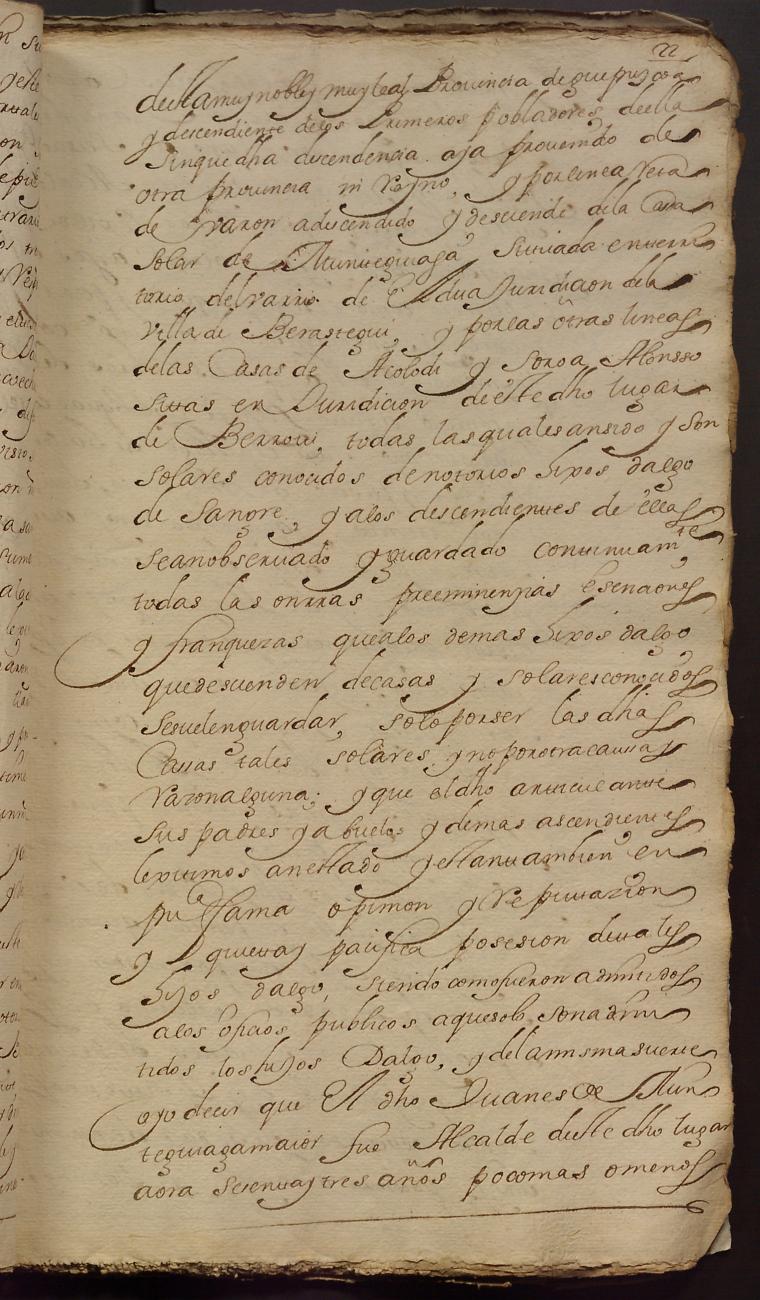 22
de esta muy noble y muy leal Provincia de guipuzcoa
y descendiente delos Primeros pobladores deella
sinque dha descendencia aja provenido de
otra provincia ni Reyno, y por linea recta
de varon adescendido y desciende dela Cassa
solar de Muniteguiaga, sittuada en terri
torio del varrio de Eldua Juridicion dela
villa de Berastegui, y por las otras lineas
delas Casas de Acolodi y Soroa Alonsso
sittas en Juridicion deeste dho lugar
de Berrovi, todas lasquales ansido y son
solares conocidos denotorios hixos dalgo
de sangre, y alos descendientes de ellas
seanobseruado y guardado continuamte
todas las onrras preeminenzias esenciones
y franquezas quealos demas hixos dalgo
quedescienden decasas y solaresconocidos
sesuelenguardar, solo porser las dhas
Cassas tales solares, ynoporotracaussa
Razonalguna; y que el dho articulante
sus padres y abuelos y demas ascendientes
lexitimos anestado yestantambien en
puca fama opinion y Reputtazion
y quieta y pacifica posesion detales
hijos dalgo, siendo comofueron admitidos
alos oficios publicos aquesolo sonadmi
tidos loshijos Dalgo, y delamismasuerte
oyo decir que El dho Juanes de Mun
teguiagamaior fue Alcalde deeste dho lugar
aora setentaytres años pocomas omenos